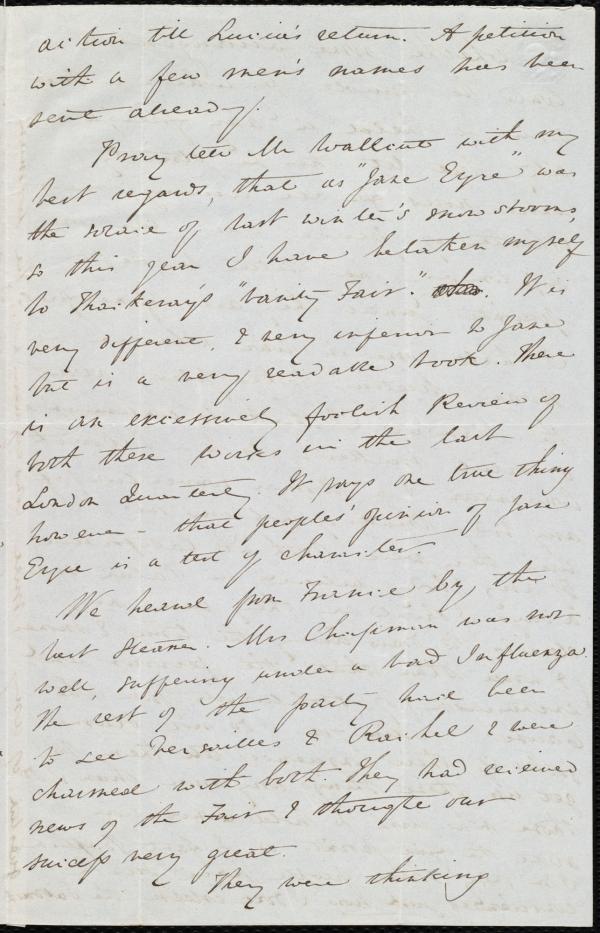 action till Lucia's return. A petition
with a few men's names has been
sent already.
Pray tell Mr Wallcut with my
best regards, that as "Jane Eyre" was
the solace of last winter's snow storms,
so this year I have betaken myself
to Thackeray's "Vanity Fair". It is
very different, & very inferior to Jane
but is a very readable book. There
is an excessively foolish Review of
both these works in the last
London Quarterly. It says one true thing
however - that peoples' opinion of Jane
Eyre is a test of character.
We heard from France by the
last steamer. Mrs Chapman was not
well, suffering under a bad Influenza.
The rest of the party have been
to see Versailles & Rachel & were
charmed with both. They had received
news of the Fair & thought our
success very great.
They were thinking